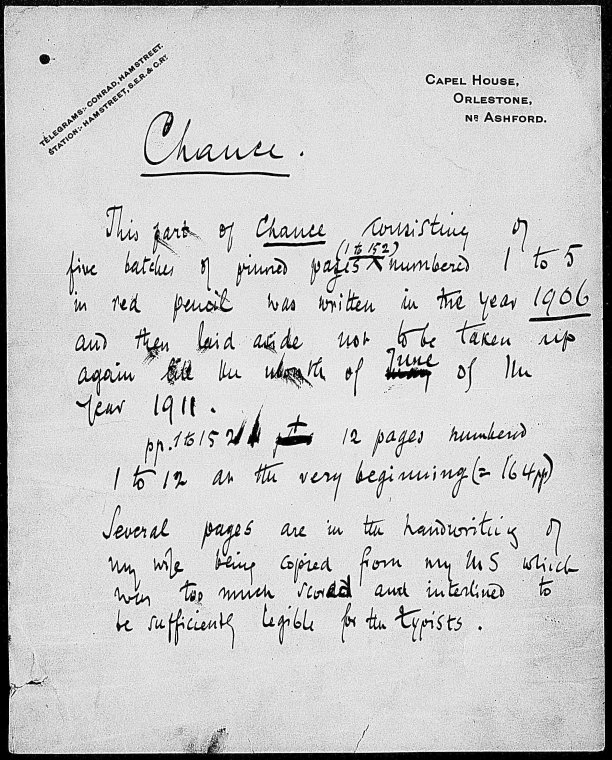 TELEGRAMS:- CONRAD, HAMSTREET.
STATION:- HAMSTREET, S.E.R. & C.RY.
CAPEL HOUSE,
ORLESTONE,
NR ASHFORD.
Chance.
This part of Chance consisting of
(1 to 152)
five batches of pinned pages numbered 1 to 5
in red pencil was written in the year 1906
and then laid aside not to be taken up
again till the month of June of the
year 1911.
pp. 1 to 152 12 pages numbered
1 to 12 at the very beginning (= 164 pp)
Several pages are in the handwriting of
my wife being copied from my MS which
was too much scored and interlined to
be sufficiently legible for the typists.